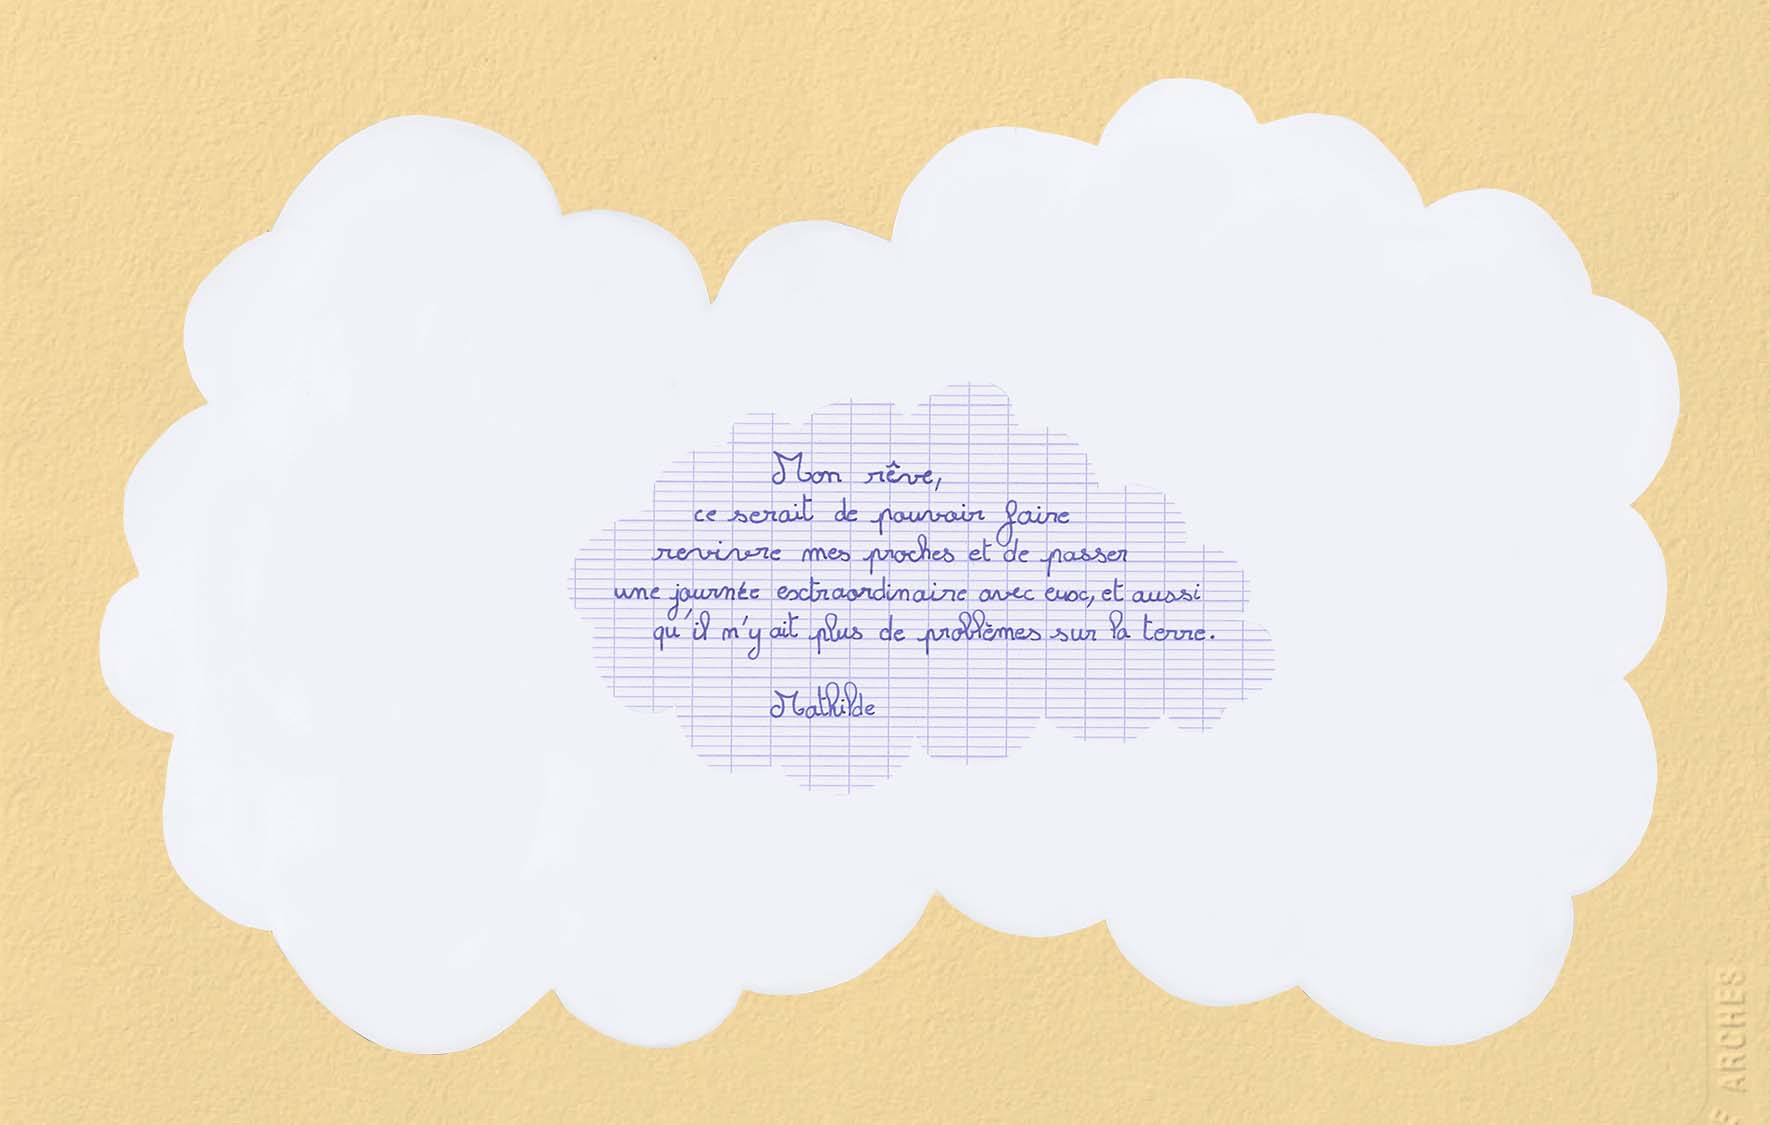 Mon rêve,
ce serait de pouvoir faire
revivre mes proches et de passer
une journée extraordinaire avec eux, et aussi
qu'il n'y ait plus de problèmes sur la terre.
Mathilde
ARCHES